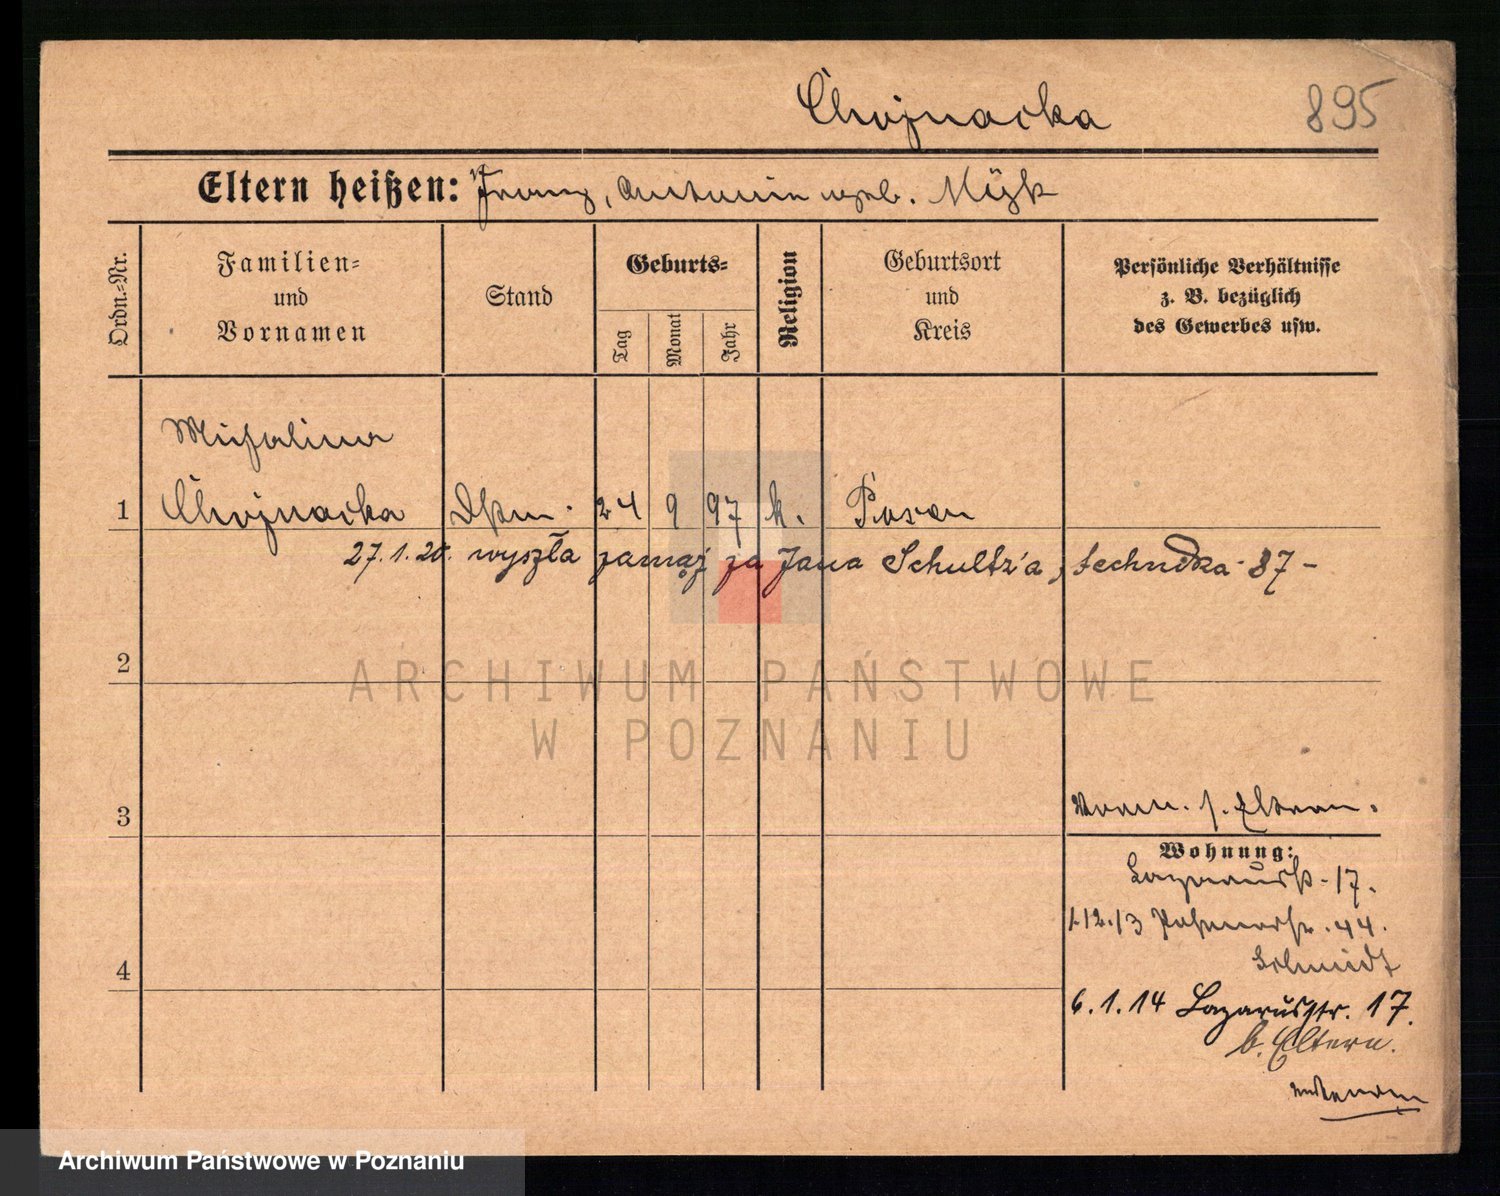 Chojnacka 895
Eltern heißen: Franz, Antonie geb. Myk
Ordn.-Nr.
Familien-
und
Vornamen
Stand
Geburts-
Tag
Monat
Jahr
Religion
Geburtsort
und
Kreis
Persönliche Verhältnisse
z. B. bezüglich
des Gewerbes usw.
Michalina
1 Chojnacka 24 9 97 k. Posen
27.1.20. wyszła zamąż za Jana Schultz'a, technika 87 -
2
3
4
s. Eltern.
Wohnung:
Lazarusstr. 17.
1.12.13 44.
Schmidt
6.1.14 Lazarusstr. 17.
b. Eltern.
ARCHIWUM PAŃSTWOWE
W POZNANIU
Archiwum Państwowe w Poznaniu